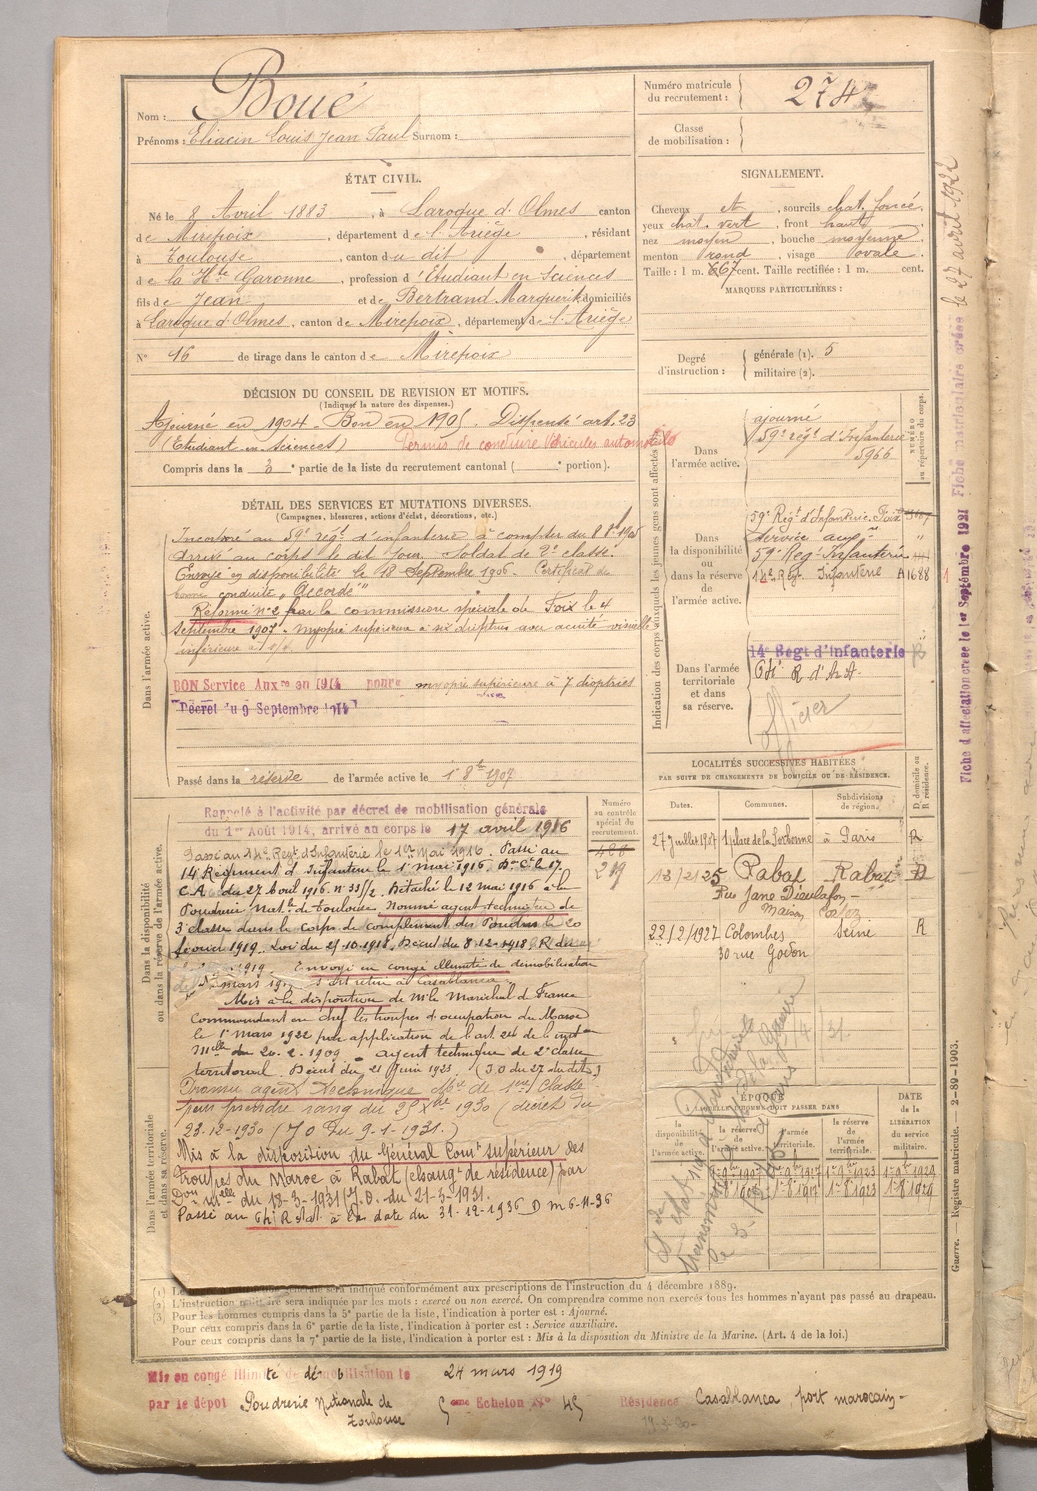 Nom : Boué
Prénoms : Eliacin Louis Jean Paul Surnom :
Numéro matricule du recrutement : 274
Classe de mobilisation :
ÉTAT CIVIL.
Né le 8 Avril 1883, à Laroque d'Olmes canton
de Mirepoix, département de l'Ariège, résidant
à Toulouse, canton du dit, département
de la Hte Garonne, profession d'Etudiant en Sciences
fils de Jean et de Bertrand Marguerite domiciliés
à Laroque d'Olmes, canton de Mirepoix, département de l'Ariège
N° 16 de tirage dans le canton de Mirepoix
SIGNALEMENT.
Cheveux et, sourcils chat. foncé,
yeux chat. vert, front haut,
nez moyen, bouche moyenne,
menton rond, visage ovale.
Taille : 1 m. 667 cent. Taille rectifiée : 1 m. cent.
MARQUES PARTICULIÈRES :
Degré d'instruction : générale (1). 5
militaire (2).
DÉCISION DU CONSEIL DE REVISION ET MOTIFS.
(Indiquer la nature des dispenses.)
Ajourné en 1904. Bon en 1905. Dispensé art. 23
(Etudiant en Sciences) Permis de conduire Véhicules automobile
Compris dans la 3e partie de la liste du recrutement cantonal ( e portion).
DÉTAIL DES SERVICES ET MUTATIONS DIVERSES.
(Campagnes, blessures, actions d'éclat, décorations, etc.)
Dans l'armée active.
Incorporé au 59e rég. d'infanterie à compter du 8 8bre 1905
Arrivé au corps le dit jour. Soldat de 2e classe
Envoyé en disponibilité le 18 Septembre 1906. Certificat de
bonne conduite "Accordé"
Réformé n° 2 par la commission spéciale de Foix le 4
Septembre 1907. Myopie supérieure à six dioptries avec acuité visuelle
inférieure à
BON Service Auxre en 1914 pour myopie supérieure à 7 dioptries
Décret du 9 Septembre 1914
Passé dans la réserve de l'armée active le 1er 8bre 1907
Indication des corps auxquels les jeunes gens sont affectés
NUMÉRO au répertoire du corps.
Dans l'armée active.
ajourné
59e rég. d'Infanterie
5966
Dans la disponibilité ou dans la réserve de l'armée active.
59e Régt d'Infanterie Foix
Service auxre
59e Reg. Infanterie
14e Régt Infanterie A 1688
Dans l'armée territoriale et dans sa réserve.
14e Régt d'Infanterie
64e R. d'A.A.
LOCALITÉS SUCCESSIVES HABITÉES
PAR SUITE DE CHANGEMENTS DE DOMICILE OU DE RÉSIDENCE.
Dates. Communes. Subdivisions de région. D domicile ou R résidence.
27 juillet 1907 1 place de la Sorbonne à Paris R
13/2/25 Rabat Rabat D
Rue Jane Dieulafoy
Maison
22/2/1927 Colombes Seine R
30 rue Godon
Dans la disponibilité ou dans la réserve de l'armée active.
Numéro au contrôle spécial du recrutement.
219
Rappelé à l'activité par décret de mobilisation générale
du 1er Août 1914, arrivé au corps le 17 avril 1916
Passé au 14e Regt d'Infanterie le 1er Mai 1916. Passé au
14e Régiment d'Infanterie le 1er Mai 1916. Don Ct le 17e
C.A. du 27 Avril 1916 n° 33/2. Détaché le 12 mai 1916 à la
Poudrerie Natle de Toulouse. Nommé agent technique de
3e classe dans le corps de complément des Poudres le 20
février 1919. Loi du 21-10-1918. Décret du 8-12-1918
1919. Envoyé en congé illimité de démobilisation
mars 1919 s'est retiré à Casablanca
Mis à la disposition de Mr le Maréchal de France
Commandant en chef les troupes d'occupation du Maroc
le 1er mars 1922 par application de l'art. 24 de l'inst.on
Mlle du 20-2-1909. agent technique de 2e classe
territorial. Décret du 21 Juin 1923. (J.O du 27 du dit)
Promu agent technique de 1ère classe
pour prendre rang du 25 Xbre 1930 (décret du
23-12-1930 (J.O du 9-1-1931.)
Dans l'armée territoriale et dans sa réserve.
Mis à la disposition du Général Comt supérieur des
troupes du Maroc à Rabat (changt de résidence) par
Don Mlle du 18-3-1931 (J.O. du 21-3-1931.
Passé au 64e R.A.A. à la date du 31-12-1936 D m 6-11-36
ÉPOQUE
À LAQUELLE L'HOMME DOIT PASSER DANS
la disponibilité de l'armée active.
la réserve
l'armée territoriale.
la réserve de l'armée territoriale.
DATE de la LIBÉRATION du service militaire.
1er 8bre 1907 1er 8bre 1917 1er 8bre 1923 1er 8bre 1929
(1) Le sera indiqué conformément aux prescriptions de l'instruction du 4 décembre 1889.
(2) L'instruction militaire sera indiquée par les mots : exercé ou non exercé. On comprendra comme non exercés tous les hommes n'ayant pas passé au drapeau.
(3) Pour les hommes compris dans la 5e partie de la liste, l'indication à porter est : Ajourné.
Pour ceux compris dans la 6e partie de la liste, l'indication à porter est : Service auxiliaire.
Pour ceux compris dans la 7e partie de la liste, l'indication à porter est : Mis à la disposition du Ministre de la Marine. (Art. 4 de la loi.)
Mis en congé illimité de démobilisation le 24 mars 1919
par le dépôt Poudrerie Nationale de Toulouse 5eme Echelon No 45 Résidence Casablanca, port marocain
Fiche d'affectation créée le 1er Septembre 1921 Fiche matriculaire créée le 27 avril 1922
Guerre. Registre matricule. — 2-89-1903.